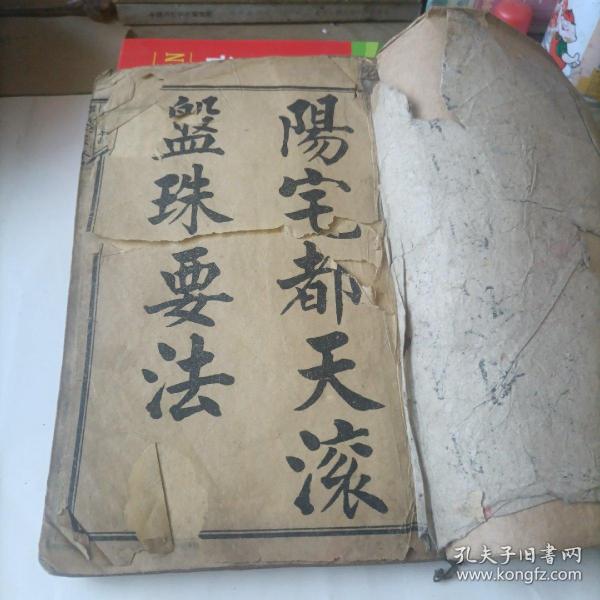 陽宅都天滚
盤珠要法
孔夫子旧书网
www.kongfz.com